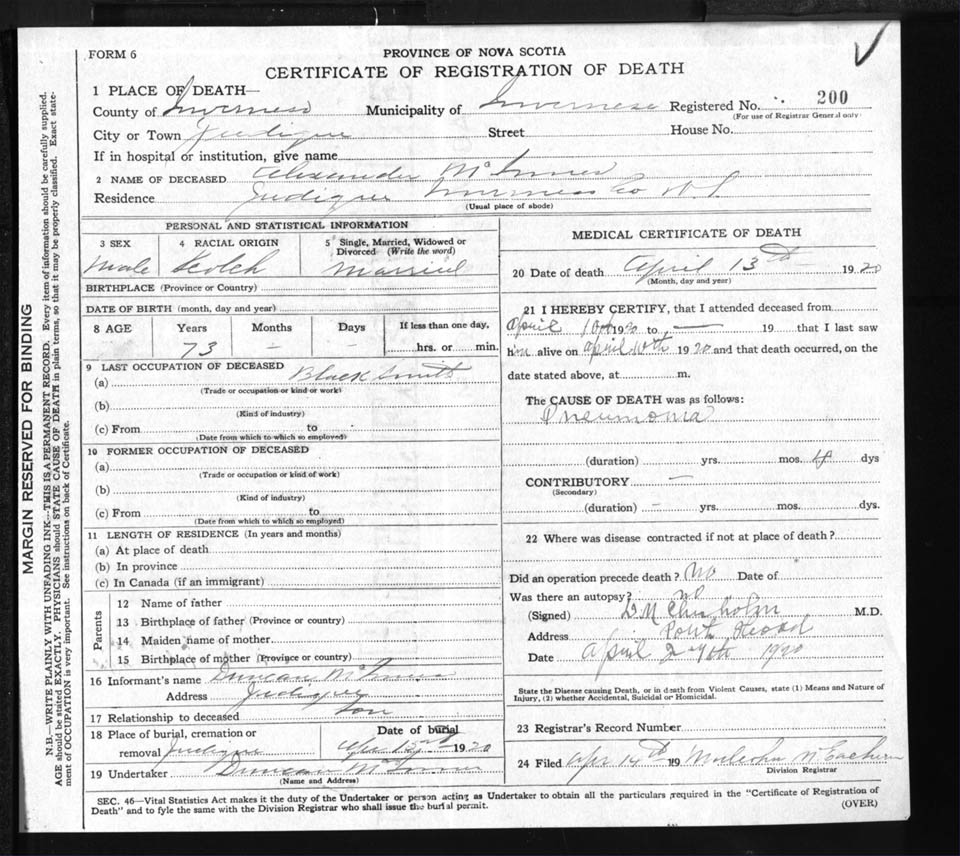 FORM 6
PROVINCE OF NOVA SCOTIA
CERTIFICATE OF REGISTRATION OF DEATH
1 PLACE OF DEATH—
County of Inverness Municipality of Inverness Registered No. 200
(For use of Registrar General only)
City or Town Judique Street House No.
If in hospital or institution, give name
2 NAME OF DECEASED Alexander McInnes
Residence Judique Inverness Co N.S.
(Usual place of abode)
PERSONAL AND STATISTICAL INFORMATION
3 SEX 4 RACIAL ORIGIN 5 Single, Married, Widowed or Divorced (Write the word)
Male Scotch Married
BIRTHPLACE (Province or Country)
DATE OF BIRTH (month, day and year)
8 AGE Years Months Days If less than one day,
73 — — hrs. or min.
9 LAST OCCUPATION OF DECEASED
(a) Black Smith
(Trade or occupation or kind or work)
(b)
(Kind of industry)
(c) From to
(Date from which to which so employed)
10 FORMER OCCUPATION OF DECEASED
(a)
(Trade or occupation or kind of work)
(b)
(Kind of industry)
(c) From to
(Date from which to which so employed)
11 LENGTH OF RESIDENCE (In years and months)
(a) At place of death
(b) In province
(c) In Canada (if an immigrant)
Parents
12 Name of father
13 Birthplace of father (Province or country)
14 Maiden name of mother
15 Birthplace of mother (Province or country)
16 Informant's name Duncan McInnes
Address Judique
17 Relationship to deceased Son
18 Place of burial, cremation or removal Judique
Date of burial Apr 15th 1920
19 Undertaker Duncan McInnes
(Name and Address)
MEDICAL CERTIFICATE OF DEATH
20 Date of death April 13th 1920
(Month, day and year)
21 I HEREBY CERTIFY, that I attended deceased from
April 10th 1920 to — 19 that I last saw
him alive on April 10th 1920 and that death occurred, on the
date stated above, at m.
The CAUSE OF DEATH was as follows:
Pneumonia
(duration) yrs. mos. 4 dys
CONTRIBUTORY —
(Secondary)
(duration) — yrs. mos. dys.
22 Where was disease contracted if not at place of death?
Did an operation precede death? No Date of
Was there an autopsy? no
(Signed) Chisholm M.D.
Address Port Hood
Date April 27th 1920
State the Disease causing Death, or in death from Violent Causes, state (1) Means and Nature of
Injury, (2) whether Accidental, Suicidal or Homicidal.
23 Registrar's Record Number
24 Filed Apr 14th 19 Malcolm McEachern
Division Registrar
SEC. 46—Vital Statistics Act makes it the duty of the Undertaker or person acting as Undertaker to obtain all the particulars required in the "Certificate of Registration of
Death" and to fyle the same with the Division Registrar who shall issue the burial permit. (OVER)
MARGIN RESERVED FOR BINDING
N.B.—WRITE PLAINLY WITH UNFADING INK—THIS IS A PERMANENT RECORD. Every item of information should be carefully supplied.
AGE should be stated EXACTLY. PHYSICIANS should STATE CAUSE OF DEATH in plain terms, so that it may be properly classified. Exact state-
ment of OCCUPATION is very important. See instructions on back of Certificate.